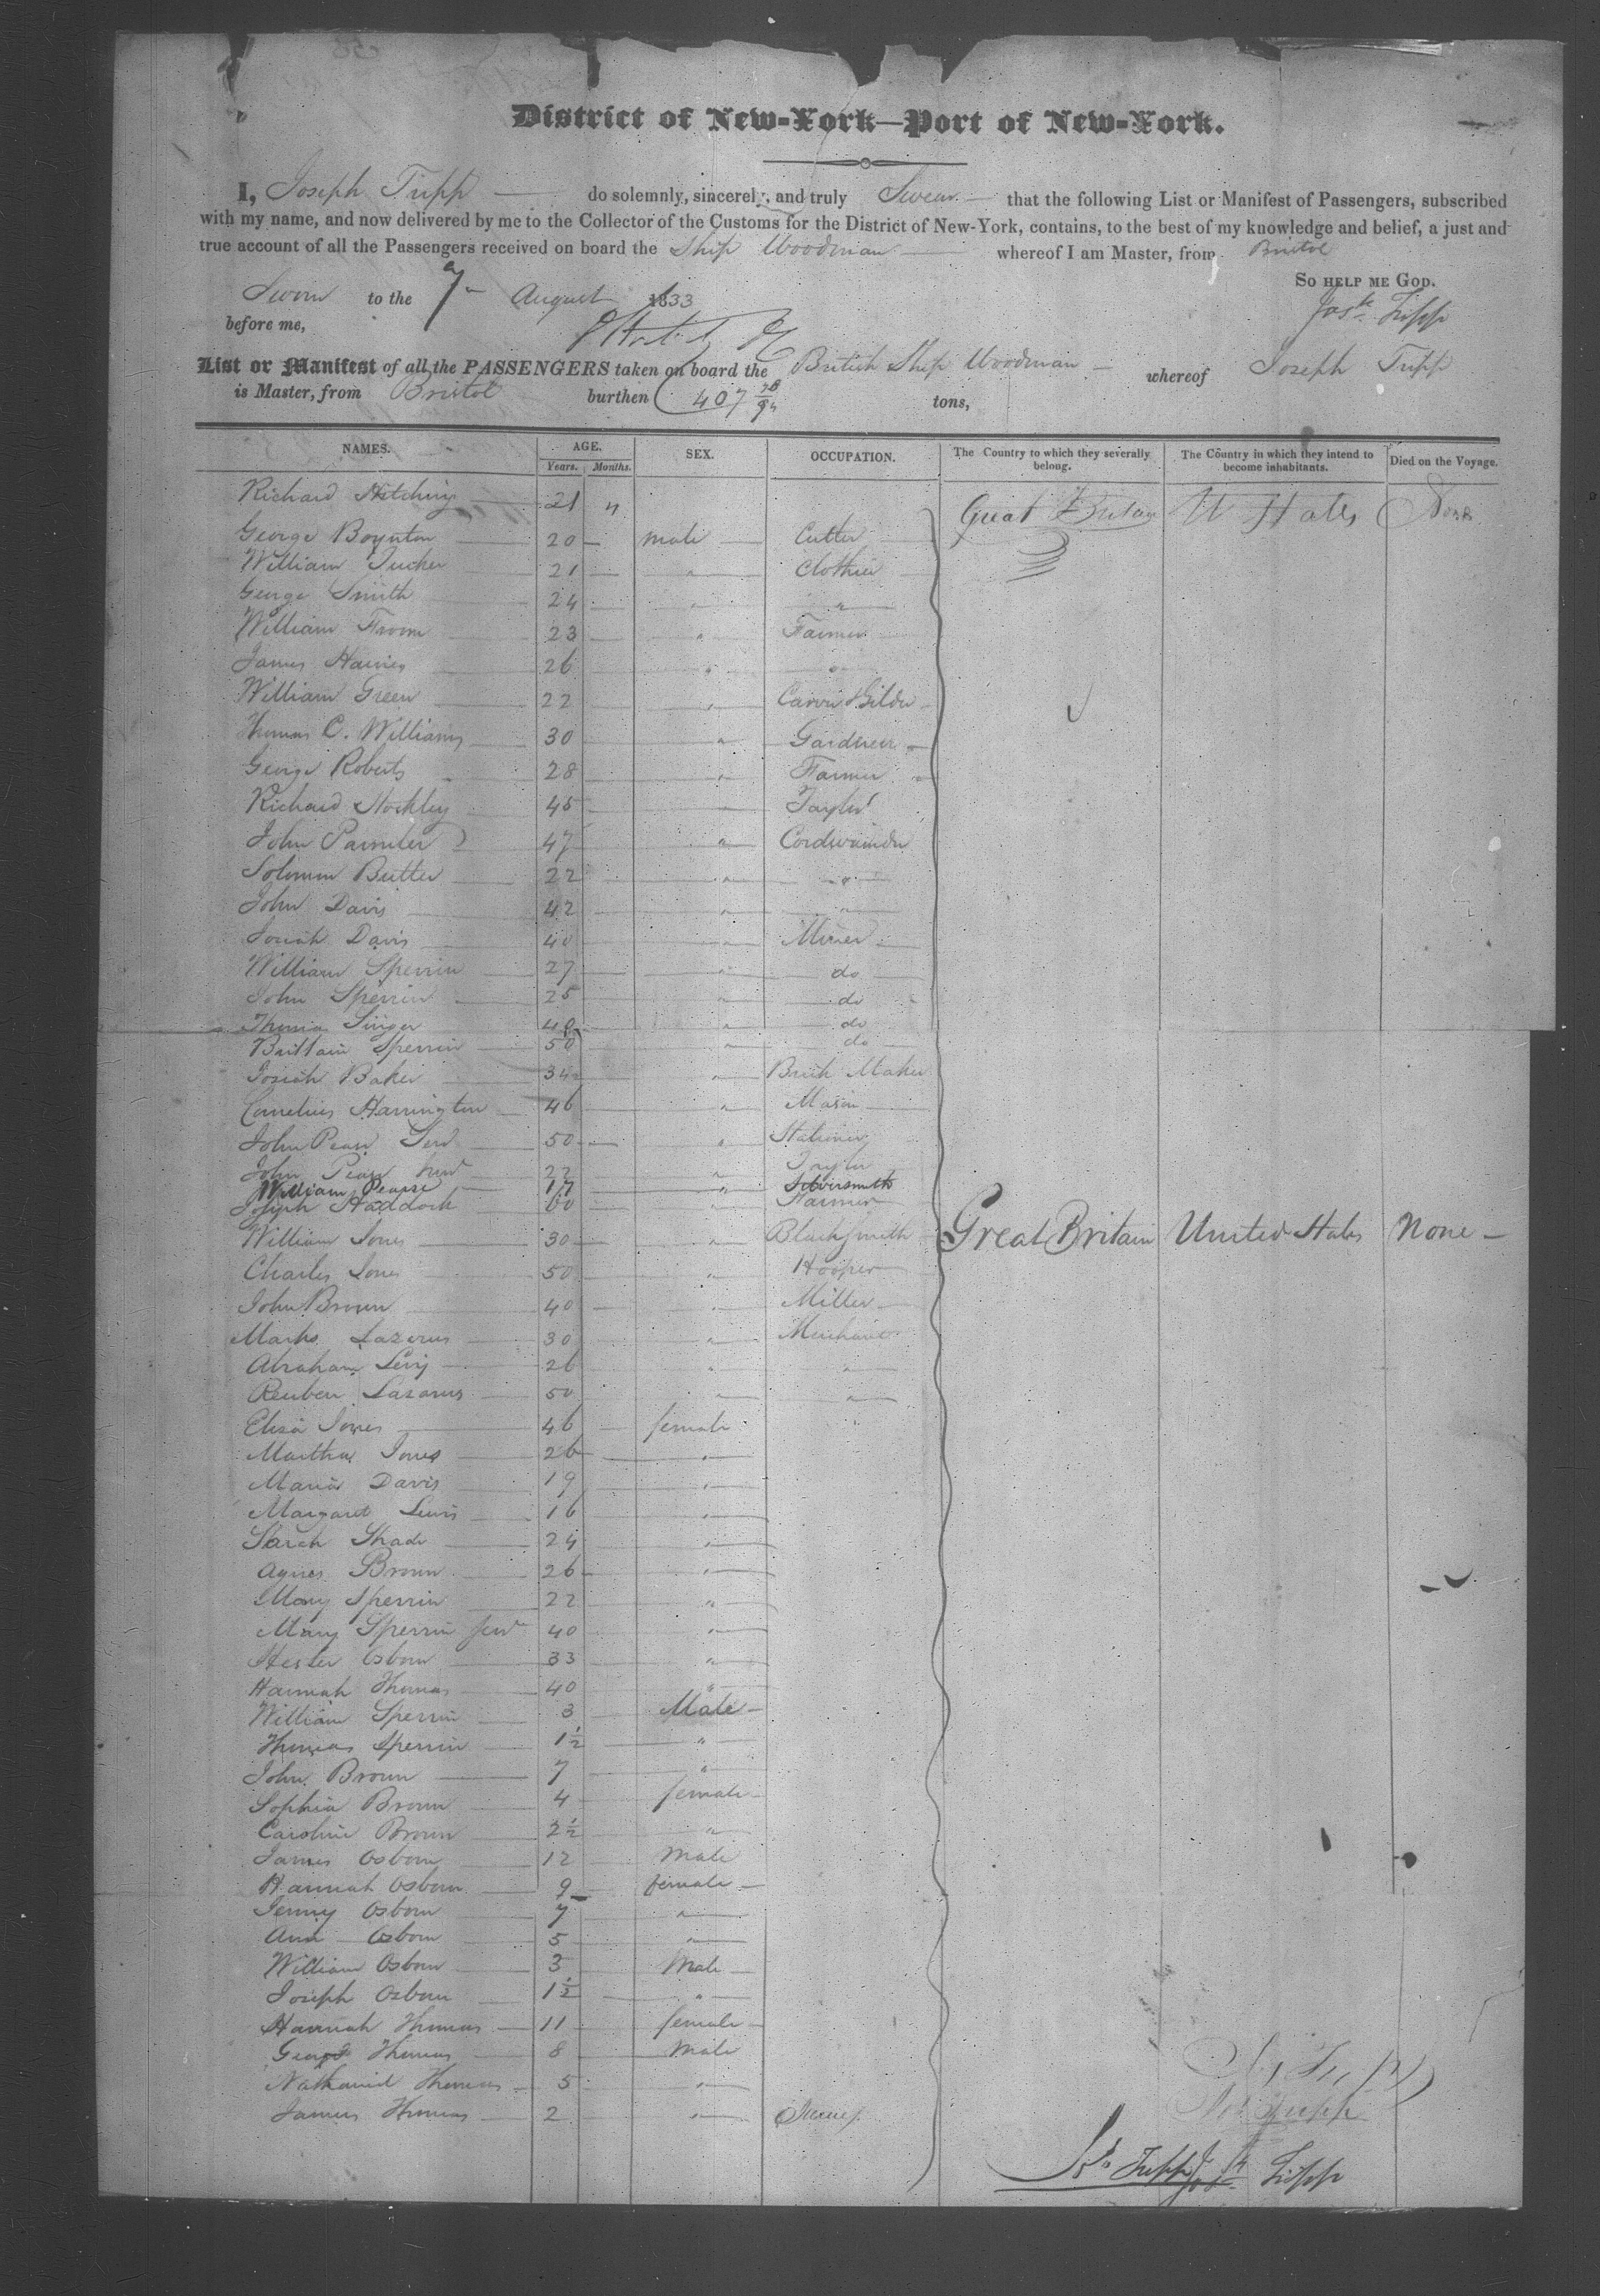 District of New-York—Port of New-York.
I, Joseph Tripp do solemnly, sincerely, and truly Swear that the following List or Manifest of Passengers, subscribed
with my name, and now delivered by me to the Collector of the Customs for the District of New-York, contains, to the best of my knowledge and belief, a just and
true account of all the Passengers received on board the Ship Woodman whereof I am Master, from Bristol
So help me God.
Sworn to the 7 August 1833
Josh Tripp
before me,
List or Manifest of all the PASSENGERS taken on board the British Ship Woodman whereof Joseph Tripp
is Master, from Bristol burthen 407 tons,
NAMES. AGE. SEX. OCCUPATION. The Country to which they severally belong. The Country in which they intend to become inhabitants. Died on the Voyage.
Years. Months.
Richard Hitchings 21 " Great Britain U States None
George Boynton 20 male Cutter
William Tucker 21 " Clothier
George Smith 24 " "
William Froom 23 " Farmer
James Haines 26 " "
William Green 22 " Carver & Gilder
Thomas C. Williams 30 " Gardner
George Roberts 28 " Farmer
Richard Hockley 45 " Taylor
John 47 " Cordwainder
Solomon Butler 22 " "
John Davis 42 " "
Josiah Davis 40 " Miner
William Sperrin 27 " do
John Sperrin 25 " do
Thomas Singer 40 " do
Brittain Sperrin 50 " do
Josiah Baker 34 " Brick Maker
Cornelius Harrington 46 " Mason
John Pearse 50 " Stationer
John Pearse 22 " Taylor
William Pearse 17 " Silversmith
Joseph Haddock 60 " Farmer
William Jones 30 " Blacksmith Great Britain United States None
Charles Jones 50 " Hooper
John Brown 40 " Miller
Marks Lazerus 30 " Merchant
Abraham Levy 26 " "
Reuben Lazarus 50 " "
Eliza Jones 46 female
Martha Jones 26 "
Maria Davis 19 "
Margaret Lewis 16 "
Sarah Shade 24 "
Agnes Brown 26 "
Mary Sperrin 22 "
Mary Sperrin 40 "
Hester Osborn 33 "
Hannah Thomas 40 "
William Sperrin 3 Male
Thomas Sperrin 1½ "
John Brown 7 "
Sophia Brown 4 female
Caroline Brown 2½ "
James Osborn 12 Male
Hannah Osborn 9 female
Jenny Osborn 7 "
Ann Osborn 5 "
William Osborn 3 Male
Joseph Osborn 1½ "
Hannah Thomas 11 female
George Thomas 8 Male
Nathaniel Thomas 5 "
James Thomas 2 "
Jos Tripp
Jos Tripp Josh Tripp